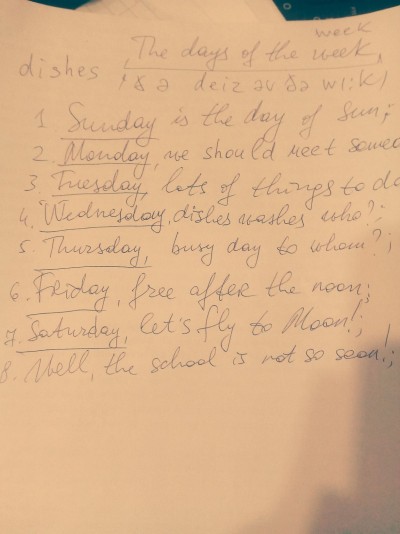 week
The days of the week,
dishes
(ðə deiz əv ðə wi:k)
1 Sunday is the day of Sun;
2. Monday, we should meet someo
3. Tuesday, lots of things to do
4. Wednesday, dishes washes who?;
5. Thursday, busy day to whom?;
6. Friday, free after the noon;
7. Saturday, let's fly to Moon!;
8. Well, the school is not so soon!;